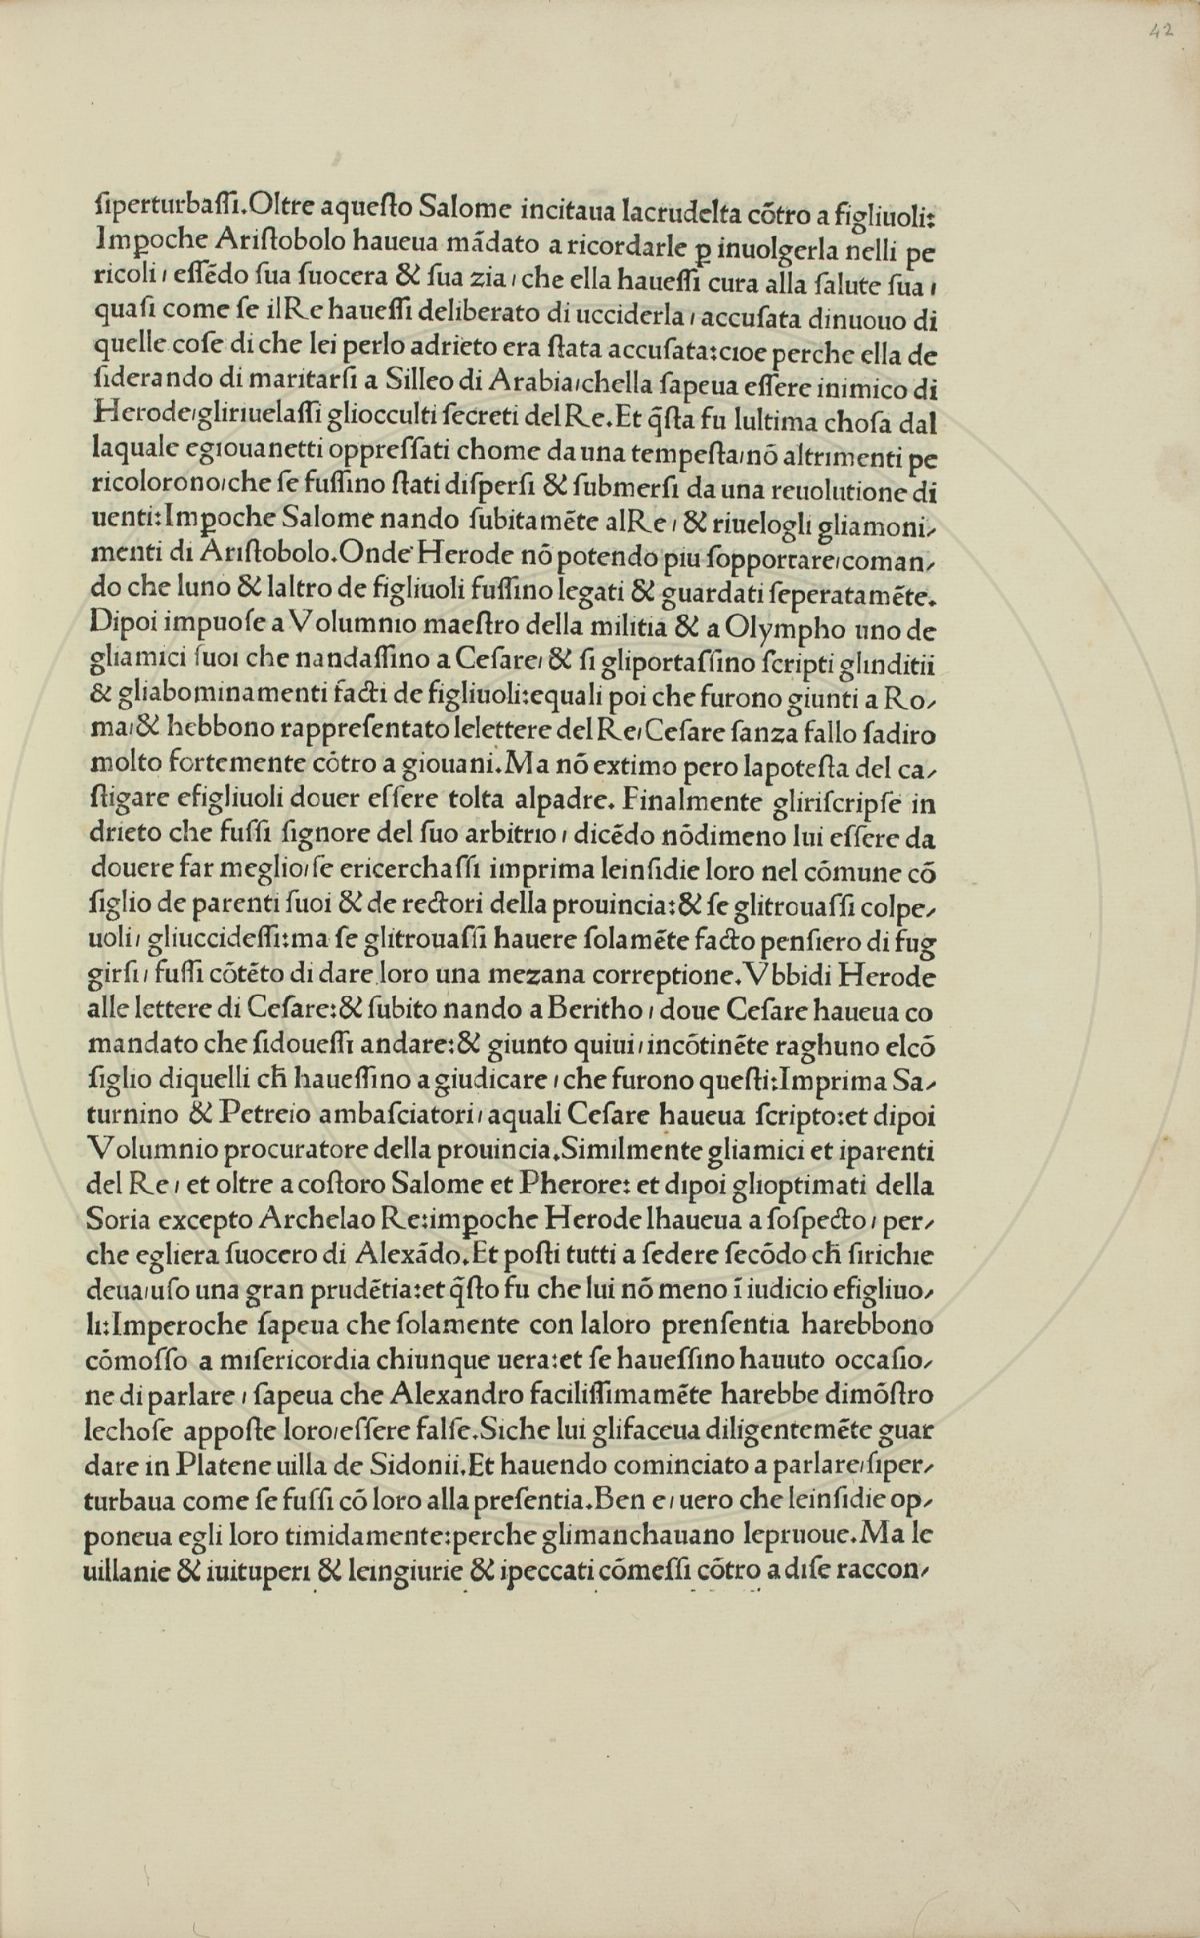 42
ſiperturbaſſi.Oltre aqueſto Salome incitaua lacrudelta cõtro a figliuoli:
Imꝑoche Ariſtobolo haueua mãdato a ricordarle ꝑ inuolgerla nelli pe
ricoli / eſſẽdo ſua ſuocera & ſua zia / che ella haueſſi cura alla ſalute ſua /
quaſi come ſe ilRe haueſſi deliberato di ucciderla / accuſata dinuouo di
quelle coſe di che lei perlo adrieto era ſtata accuſata:cioe perche ella de
ſiderando di maritarſi a Silleo di Arabia/chella ſapeua eſſere inimico di
Herode/gliriuelaſſi gliocculti ſecreti del Re.Et q̃ſta fu lultima choſa dal
laquale egiouanetti oppreſſati chome da una tempeſta/nõ altrimenti pe
ricolorono/che ſe fuſſino ſtati diſperſi & ſubmerſi da una reuolutione di
uenti:Imꝑoche Salome nando ſubitamẽte alRe / & riuelogli gliamoni/
menti di Ariſtobolo.Onde Herode nõ potendo piu ſopportare/coman/
do che luno & laltro de figliuoli fuſſino legati & guardati ſeperatamẽte.
Dipoi impuoſe a Volumnio maeſtro della militia & a Olympho uno de
gliamici ſuoi che nandaſſino a Ceſare/ & ſi gliportaſſino ſcripti glinditii
& gliabominamenti facti de figliuoli:equali poi che furono giunti a Ro/
ma/& hebbono rappreſentato lelettere del Re/Ceſare ſanza fallo ſadiro
molto fortemente cõtro a giouani.Ma nõ extimo pero lapoteſta del ca/
ſtigare efigliuoli douer eſſere tolta alpadre. Finalmente gliriſcripſe in
drieto che fuſſi ſignore del ſuo arbitrio / dicẽdo nõdimeno lui eſſere da
douere far meglio/ſe ericerchaſſi imprima leinſidie loro nel cõmune cõ
ſiglio de parenti ſuoi & de rectori della prouincia:& ſe glitrouaſſi colpe/
uoli / gliuccideſſi:ma ſe glitrouaſſi hauere ſolamẽte facto penſiero di fug
girſi / fuſſi cõtẽto di dare loro una mezana correptione.Vbbidi Herode
alle lettere di Ceſare:& ſubito nando a Beritho / doue Ceſare haueua co
mandato che ſidoueſſi andare:& giunto quiui / incõtinẽte raghuno elcõ
ſiglio diquelli ch̃ haueſſino a giudicare / che furono queſti:Imprima Sa/
turnino & Petreio ambaſciatori / aquali Ceſare haueua ſcripto:et dipoi
Volumnio procuratore della prouincia.Similmente gliamici et iparenti
del Re / et oltre a coſtoro Salome et Pherore: et dipoi glioptimati della
Soria excepto Archelao Re:imꝑoche Herode lhaueua a ſoſpecto / per/
che egliera ſuocero di Alexãdo.Et poſti tutti a ſedere ſecõdo ch̃ ſirichie
deua/uſo una gran prudẽtia:et q̃ſto fu che lui nõ meno ĩ iudicio efigliuo/
li:Imperoche ſapeua che ſolamente con laloro prenſentia harebbono
cõmoſſo a miſericordia chiunque uera:et ſe haueſſino hauuto occaſio/
ne di parlare / ſapeua che Alexandro faciliſſimamẽte harebbe dimõſtro
lechoſe appoſte loro/eſſere falſe.Siche lui glifaceua diligentemẽte guar
dare in Platene uilla de Sidonii.Et hauendo cominciato a parlare/ſiper/
turbaua come ſe fuſſi cõ loro alla preſentia.Ben e / uero che leinſidie op/
poneua egli loro timidamente:perche glimanchauano lepruoue.Ma le
uillanie & iuituperi & leingiurie & ipeccati cõmeſſi cõtro a diſe raccon/